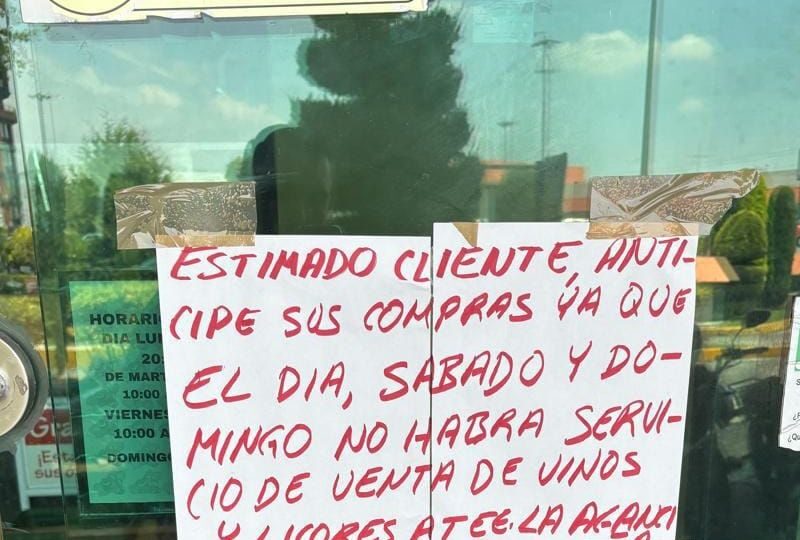 ESTIMADO CLIENTE, ANTI-
CIPE SUS COMPRAS YA QUE
EL DIA, SABADO Y DO-
MINGO NO HABRA SERVI-
CIO DE VENTA DE VINOS
Y LICORES ATEE. LA AGENCI
HORARI
DIA LU
20:
DE MART
10:00
VIERNES
10:00 A
DOMING
Gra
¡Est
sus o